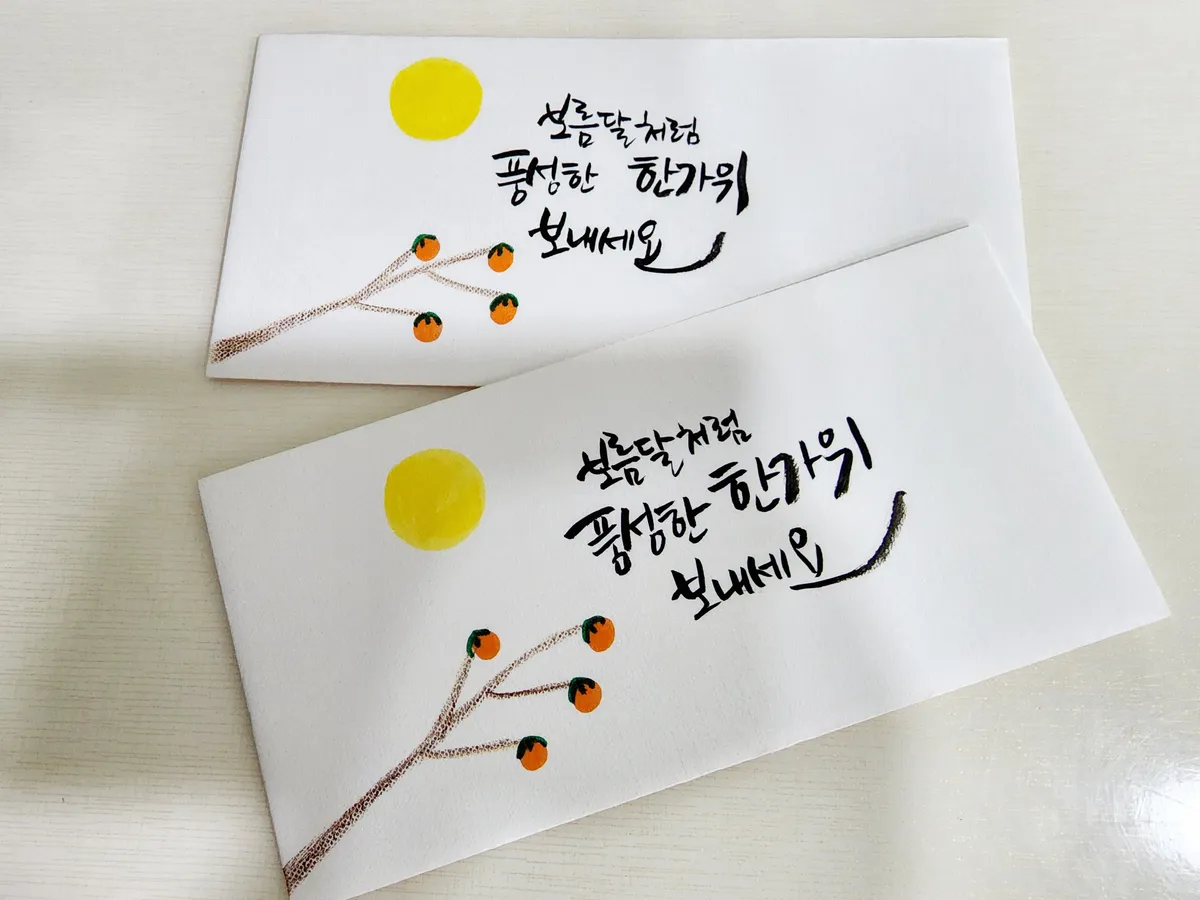 보름달처럼
풍성한 한가위
보내세요
보름달처럼
풍성한 한가위
보내세요